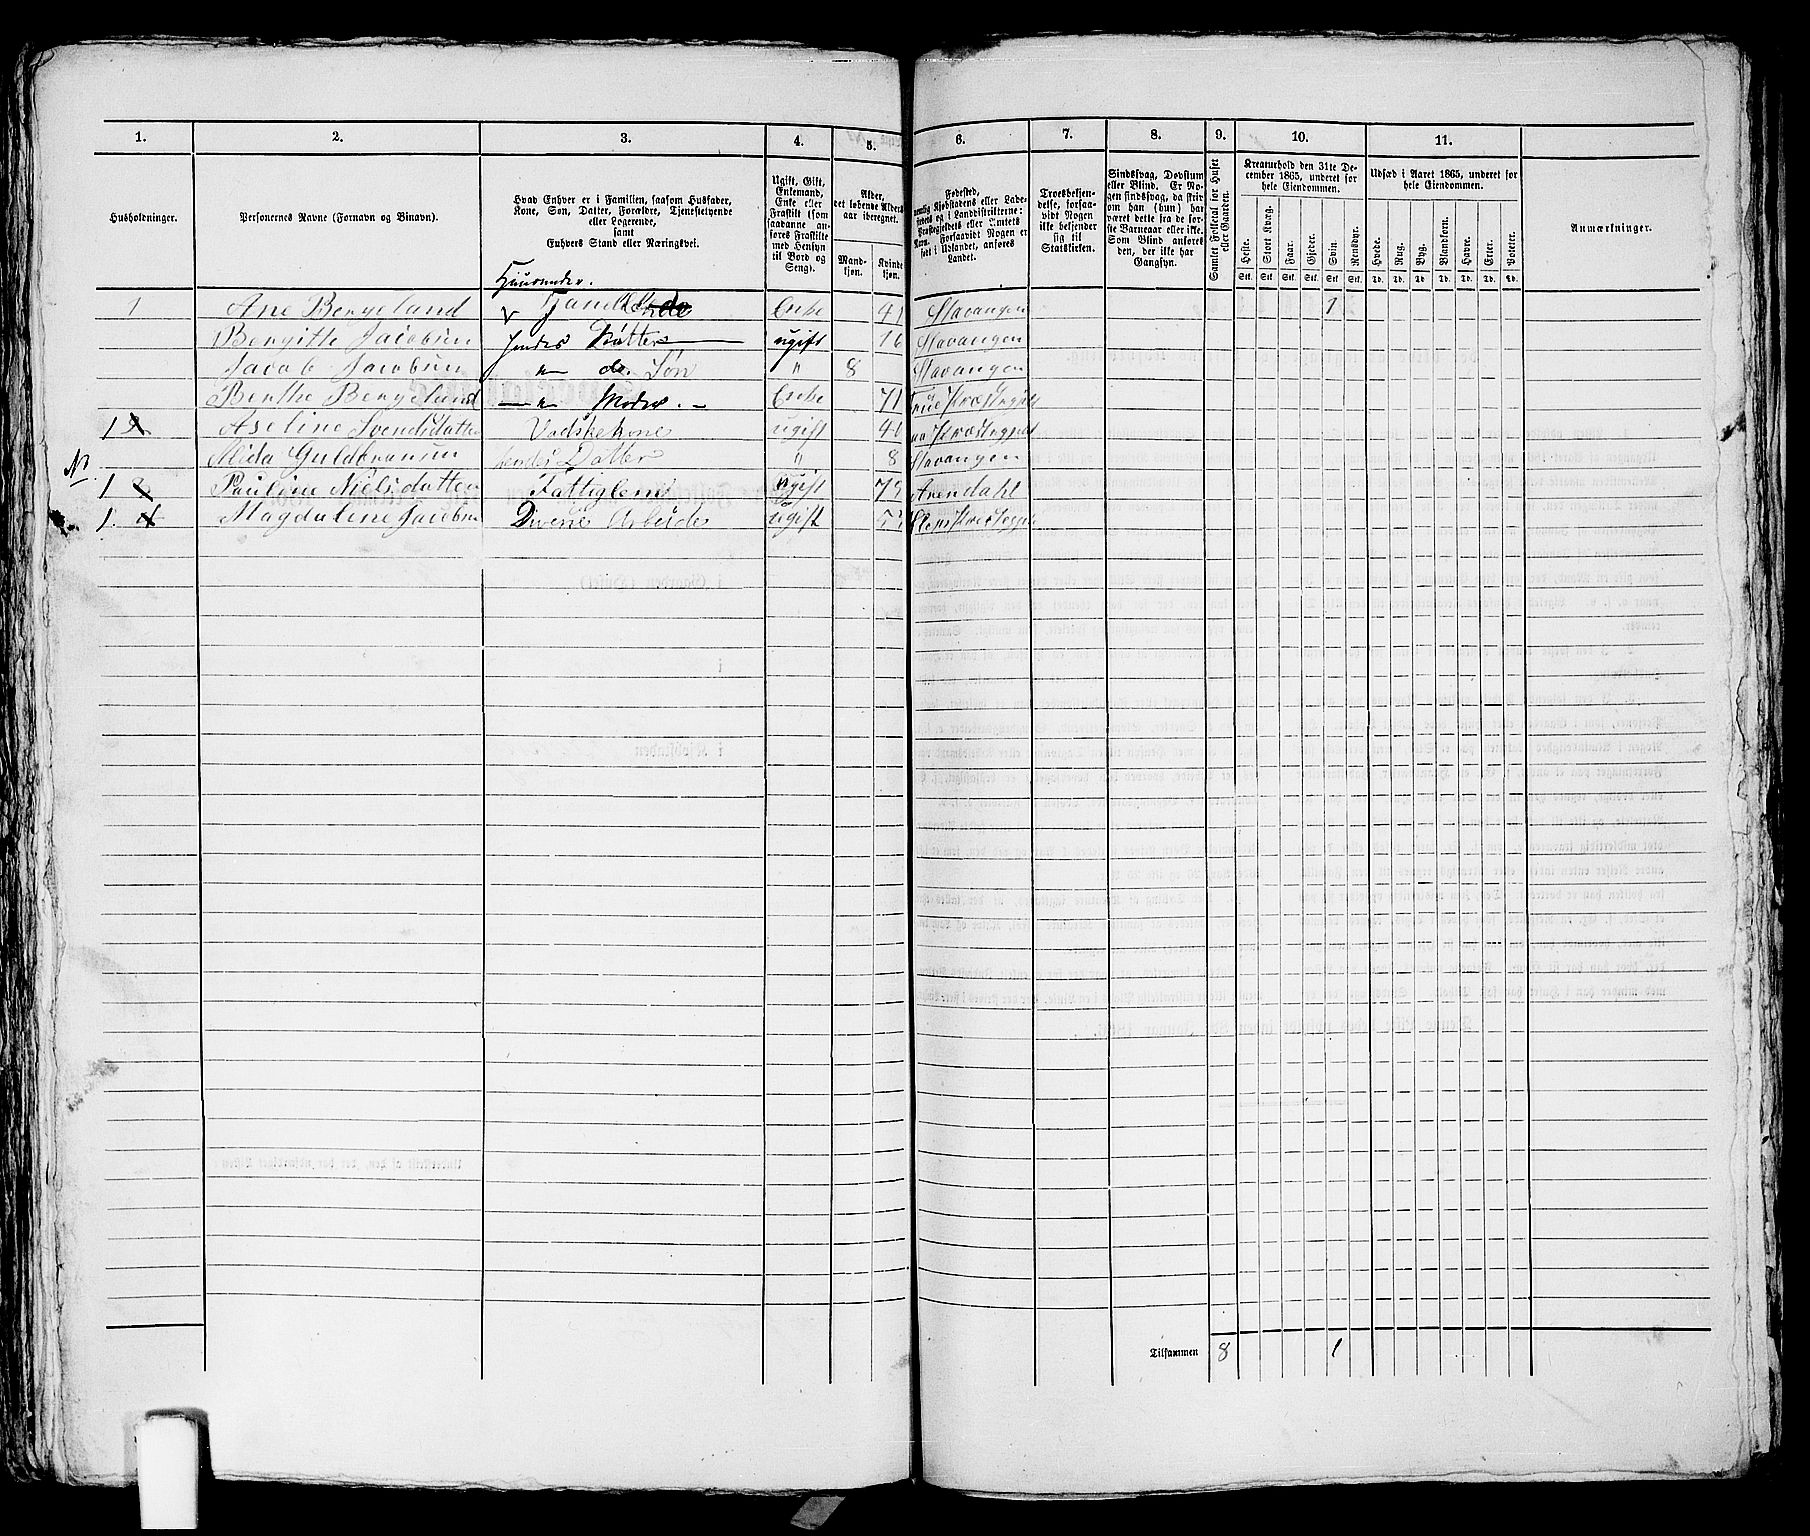 1. 2. 3. 4. 5. 6. 7. 8. 9. 10. 11.
Husholdninger.
Personernes Navne (Fornavn og Binavn).
Hvad Enhver er i Familien, saasom Husfader,
Kone, Søn, Datter, Forældre, Tjenestetyende
eller Logerende,
samt
Enhvers Stand eller Næringsvei.
Ugift, Gift,
Enkemand,
Enke eller
Fraskilt (som
saadanne an-
føres Fraskilte
med Hensyn
til Bord og
Seng).
Alder,
det løbende Alders-
aar iberegnet.
Mand-
kjøn.
Kvinde
kjøn.
Fødested,
nemlig Kjøbstadens eller Lade-
stedets og i Landdistrikterne:
Præstegjeldets eller Amtets
Navn. Forsaavidt Nogen er
født i Udlandet, anføres
Landet.
Troesbekjen-
delse, forsaa-
vidt Nogen
ikke bekjender
sig til
Statskirken.
Sindssvag, Døvstum
eller Blind. Er No-
gen sindssvag, da skri-
ves om han (hun) har
været dette fra de før-
ste Barneaar eller ikke.
Som Blind anføres
den, der ikke har
Gangsyn.
Samlet Folketal for Huset
eller Gaarden.
Kreaturhold den 31te De-
cember 1865, underet for
hele Eiendommen.
Heste. Stort Kvæg. Faar. Gjeder. Svin. Rensdyr.
Stk. Stk. Stk. Stk. Stk. Stk.
Udsæd i Aaret 1865, underet for
hele Eiendommen.
Hvede. Rug. Byg. Blandkorn. Havre. Erter. Poteter.
Td. Td. Td. Td. Td. Td. Td.
Anmærkninger.
1 Ane Bergeland Enke 41 Stavanger 1
Bergitte Jacobsen hendes Datter ugift 16 Stavanger
Jacob Jacobsen " do. Søn " 8 Stavanger
Berthe Bergeland " Moder. Enke 71
1 2 Aseline Svendsdatter Vadskekone ugift
Alida Guldbransen hendes Datter " 8 Stavanger
N.
1 3 Pauline Nielsdatter Fattiglem ugift Arendahl
1. 4 Magdalene Jacobsen Diverse Arbeide ugift
Tilsammen 8 1